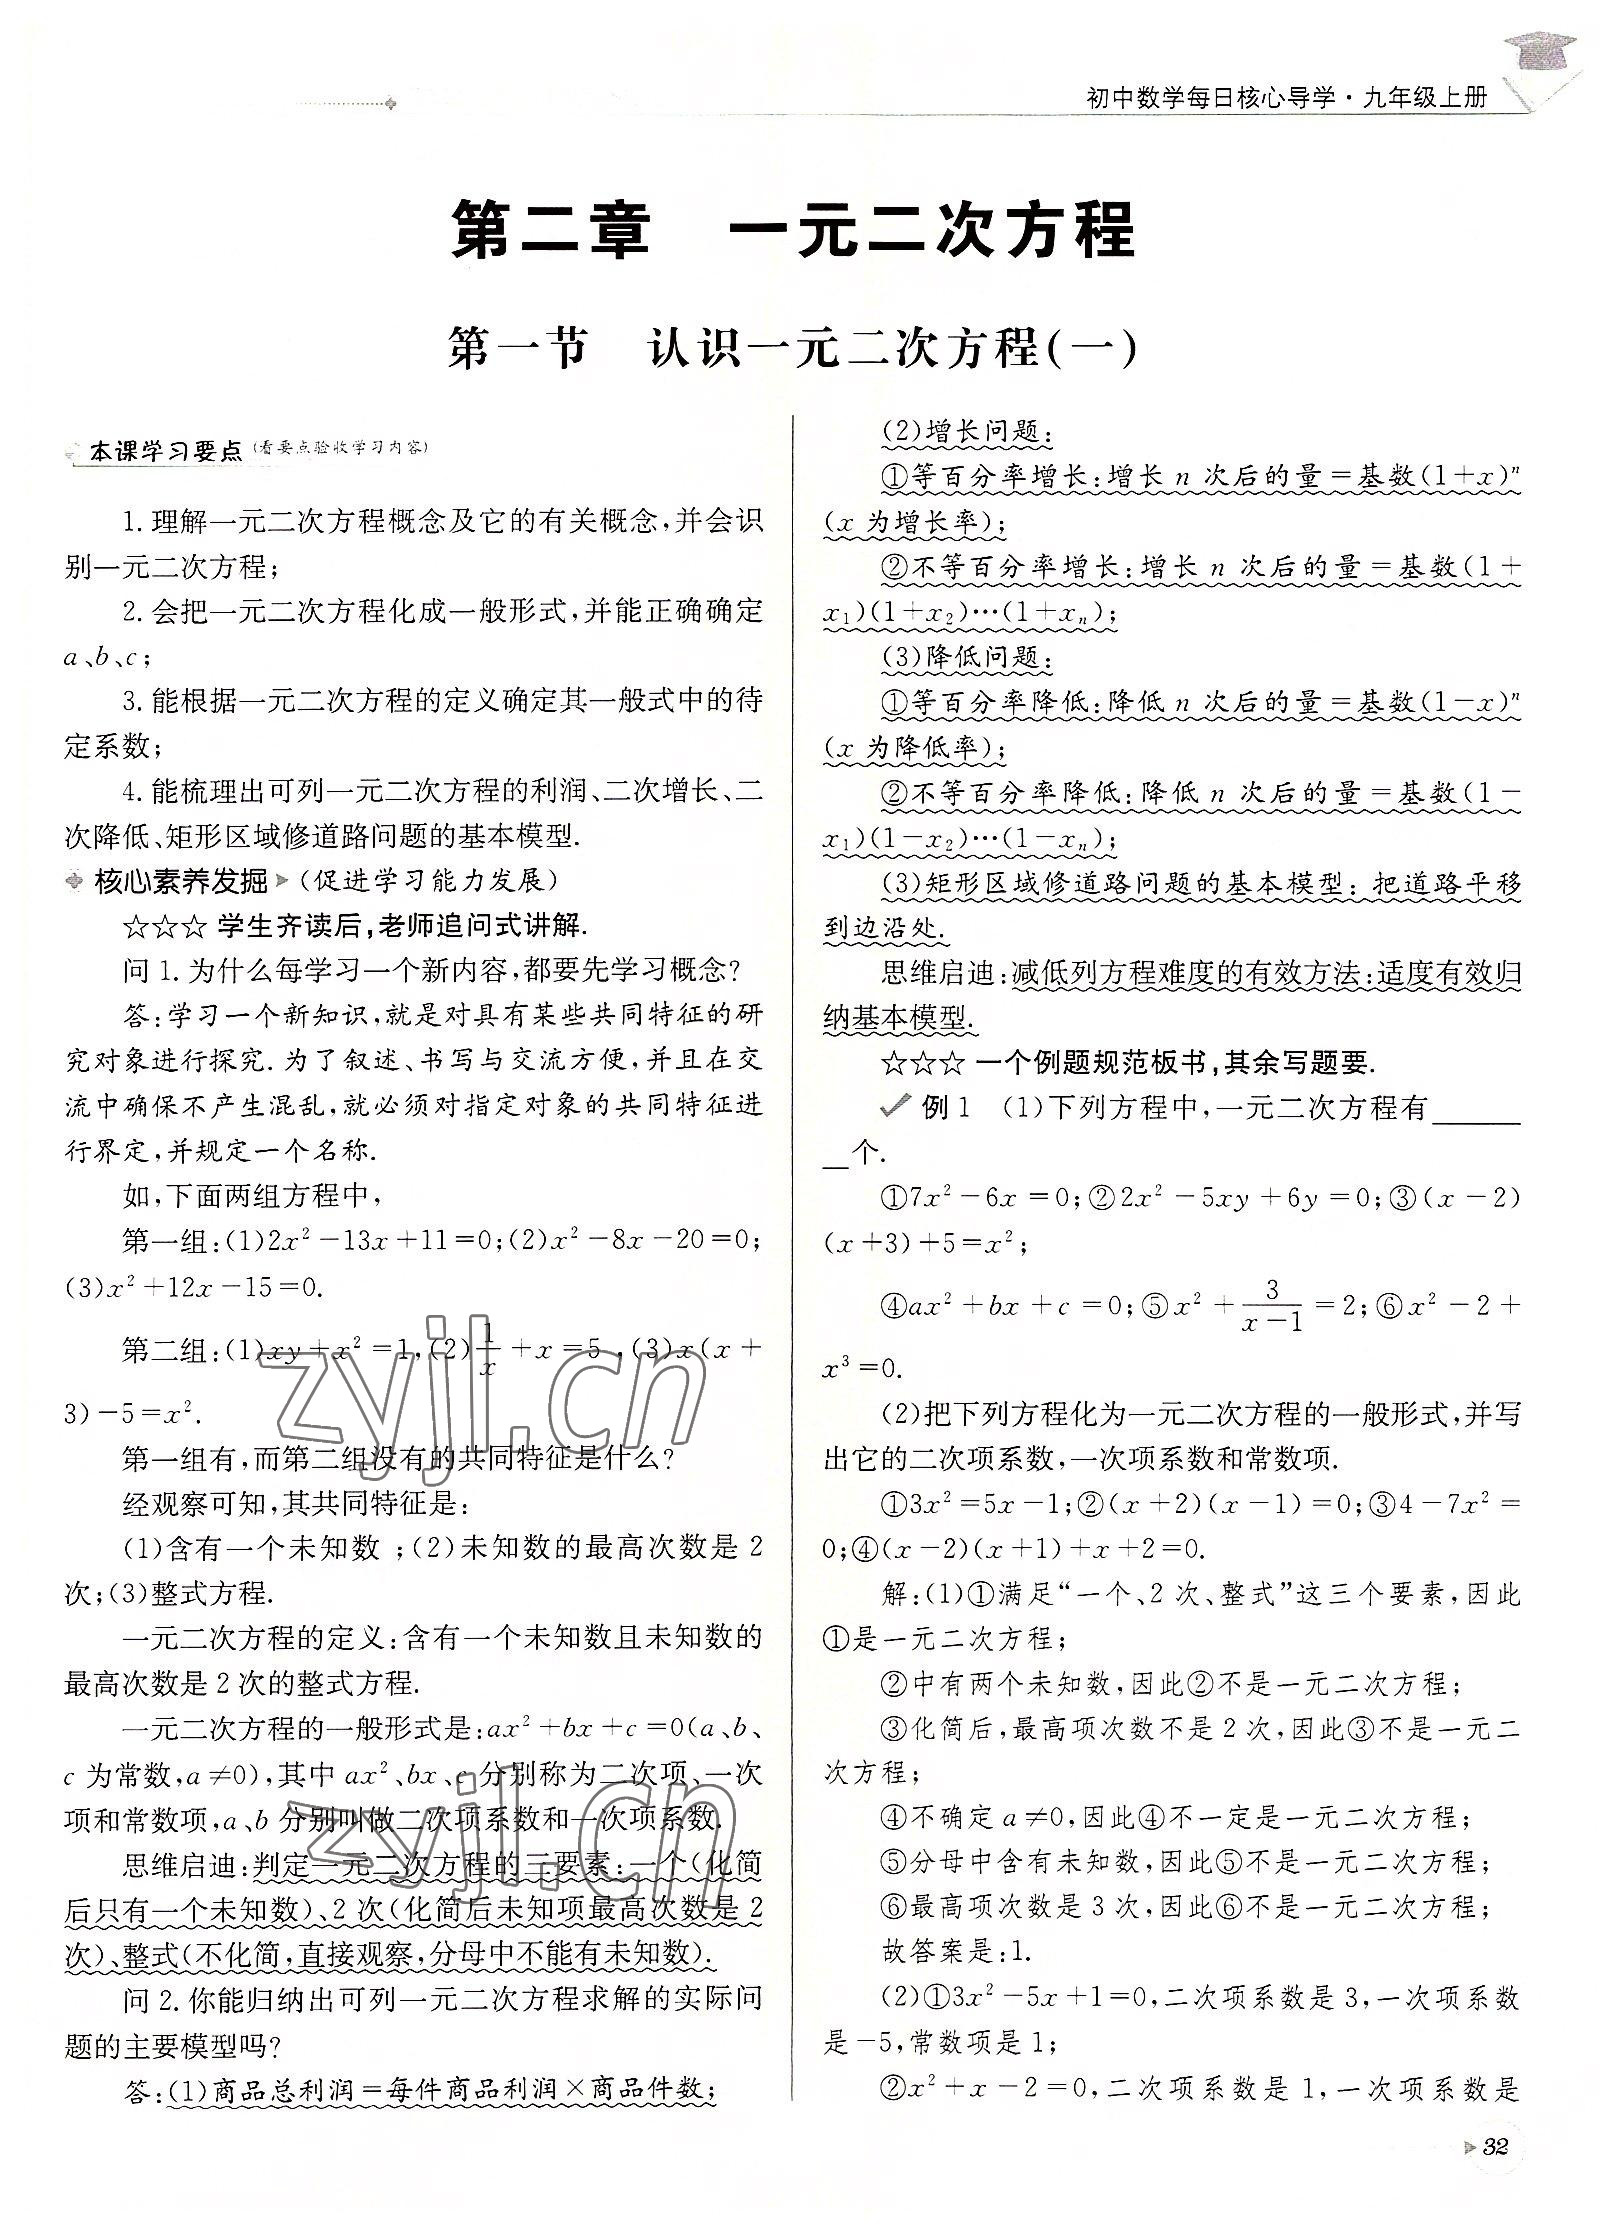 初中数学每日核心导学·九年级上册
第二章 一元二次方程
第一节 认识一元二次方程(一)
本课学习要点(看要点验收学习内容)
1.理解一元二次方程概念及它的有关概念,并会识
别一元二次方程;
2.会把一元二次方程化成一般形式,并能正确确定
a、b、c;
3.能根据一元二次方程的定义确定其一般式中的待
定系数;
4.能梳理出可列一元二次方程的利润、二次增长、二
次降低、矩形区域修道路问题的基本模型.
核心素养发掘(促进学习能力发展)
☆☆☆ 学生齐读后,老师追问式讲解.
问1.为什么每学习一个新内容,都要先学习概念?
答:学习一个新知识,就是对具有某些共同特征的研
究对象进行探究.为了叙述、书写与交流方便,并且在交
流中确保不产生混乱,就必须对指定对象的共同特征进
行界定,并规定一个名称.
如,下面两组方程中,
第一组:(1)2x²-13x+11=0;(2)x²-8x-20=0;
(3)x²+12x-15=0.
第二组:(1)xy+x²=1,(2)1/x+x=5,(3)x(x+
3)-5=x².
第一组有,而第二组没有的共同特征是什么?
经观察可知,其共同特征是:
(1)含有一个未知数;(2)未知数的最高次数是2
次;(3)整式方程.
一元二次方程的定义:含有一个未知数且未知数的
最高次数是2次的整式方程.
一元二次方程的一般形式是:ax²+bx+c=0(a、b、
c为常数,a≠0),其中ax²、bx、c分别称为二次项、一次
项和常数项,a、b分别叫做二次项系数和一次项系数.
思维启迪:判定一元二次方程的三要素:一个(化简
后只有一个未知数)、2次(化简后未知项最高次数是2
次)、整式(不化简,直接观察,分母中不能有未知数).
问2.你能归纳出可列一元二次方程求解的实际问
题的主要模型吗?
答:(1)商品总利润=每件商品利润×商品件数;
(2)增长问题:
①等百分率增长:增长n次后的量=基数(1+x)ⁿ
(x为增长率);
②不等百分率增长:增长n次后的量=基数(1+
x₁)(1+x₂)…(1+xₙ);
(3)降低问题:
①等百分率降低:降低n次后的量=基数(1-x)ⁿ
(x为降低率);
②不等百分率降低:降低n次后的量=基数(1-
x₁)(1-x₂)…(1-xₙ);
(3)矩形区域修道路问题的基本模型:把道路平移
到边沿处.
思维启迪:减低列方程难度的有效方法:适度有效归
纳基本模型.
☆☆☆ 一个例题规范板书,其余写题要.
例1 (1)下列方程中,一元二次方程有______
__个.
①7x²-6x=0;②2x²-5xy+6y=0;③(x-2)
(x+3)+5=x²;
④ax²+bx+c=0;⑤x²+3/(x-1)=2;⑥x²-2+
x³=0.
(2)把下列方程化为一元二次方程的一般形式,并写
出它的二次项系数,一次项系数和常数项.
①3x²=5x-1;②(x+2)(x-1)=0;③4-7x²=
0;④(x-2)(x+1)+x+2=0.
解:(1)①满足“一个、2次、整式”这三个要素,因此
①是一元二次方程;
②中有两个未知数,因此②不是一元二次方程;
③化简后,最高项次数不是2次,因此③不是一元二
次方程;
④不确定a≠0,因此④不一定是一元二次方程;
⑤分母中含有未知数,因此⑤不是一元二次方程;
⑥最高项次数是3次,因此⑥不是一元二次方程;
故答案是:1.
(2)①3x²-5x+1=0,二次项系数是3,一次项系数
是-5,常数项是1;
②x²+x-2=0,二次项系数是1,一次项系数是
32
zyjl.cn
zyjl.cn